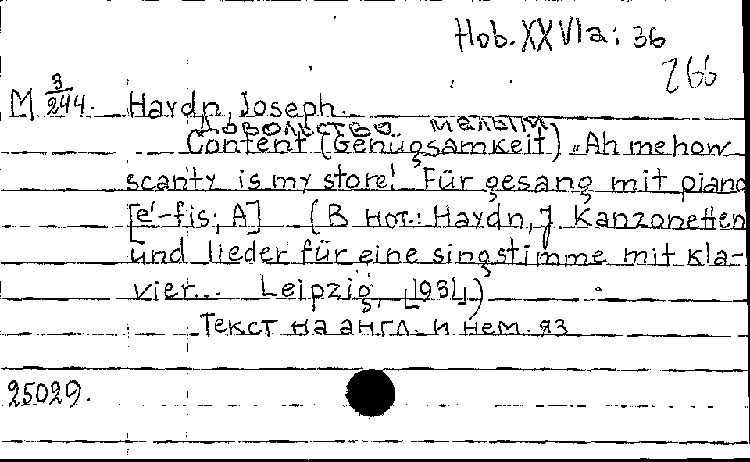 Hob. XXVIa: 36
266
M 3/244. Haydn, Joseph.
Довольство малым
Content (Genügsamkeit) „Ah me how
scanty is my store! Für gesang mit piano
[e'-fis; A] (В нот.: Haydn, J. Kanzonetten
und lieder für eine singstimme mit kla-
vier... Leipzig, [1931])
Текст на англ. и нем. яз
25029.